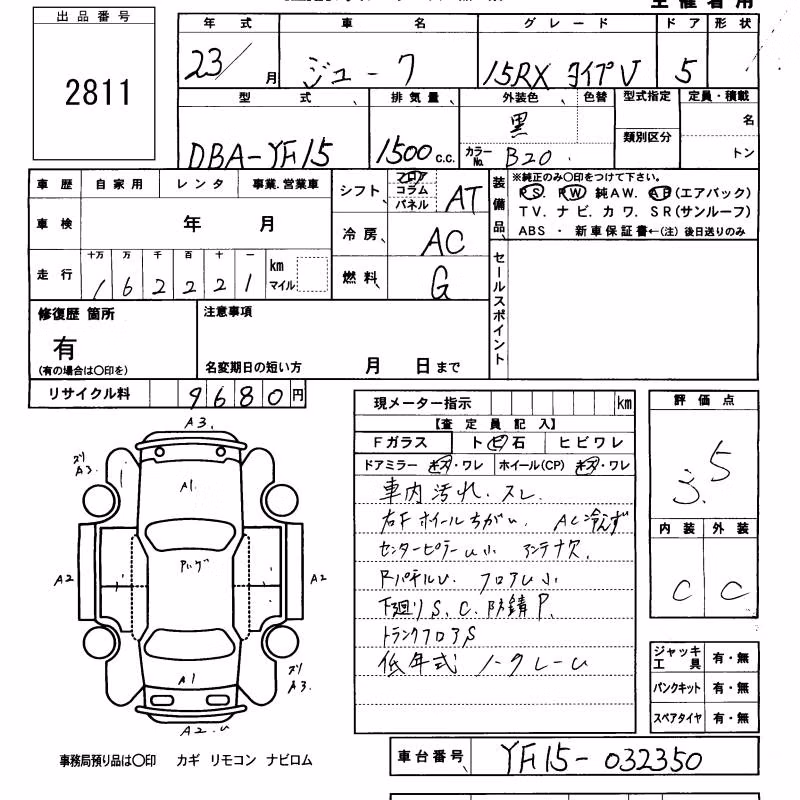 出品番号
2811
年式 車名 グレード ドア 形状
23/ 月 ジューク 15RX タイプV 5
型式 排気量 外装色 色替 型式指定 定員・積載
DBA-YF15 1500 c.c. 黒 類別区分 名
カラーNo. B20 トン
車歴 自家用 レンタ 事業.営業車
車検 年 月
走行 十万 万 千 百 十 一
1 6 2 2 2 1 km マイル
シフト フロア コラム パネル AT
冷房 AC
燃料 G
装備品
※純正のみ〇印をつけて下さい。
PS. PW 純AW. AB(エアバック)
TV. ナビ. カワ. SR(サンルーフ)
ABS ・ 新車保証書←(注) 後日送りのみ
セールスポイント
修復歴 箇所
有
(有の場合は〇印を)
注意事項
名変期日の短い方 月 日まで
リサイクル料 9680円
現メーター指示 km
【査定員記入】
Fガラス ト ビ 石 ヒビワレ
ドアミラー キズ・ワレ ホイール(CP) キズ・ワレ
車内汚れ.スレ
右Fホイールちがい. AC冷えず
センターピラーU小 アンテナ欠.
RパネルU. フロアU小
下廻りS.C.防錆P.
トランクフロアS
低年式 ノークレーム
評価点
3.5
内装 外装
C C
ジャッキ工具 有・無
パンクキット 有・無
スペアタイヤ 有・無
A3.
ズリ A3.
A1.
A2
A2
A1
ズリ A3.
A2.U
事務局預り品は〇印 カギ リモコン ナビロム
車台番号 YF15-032350